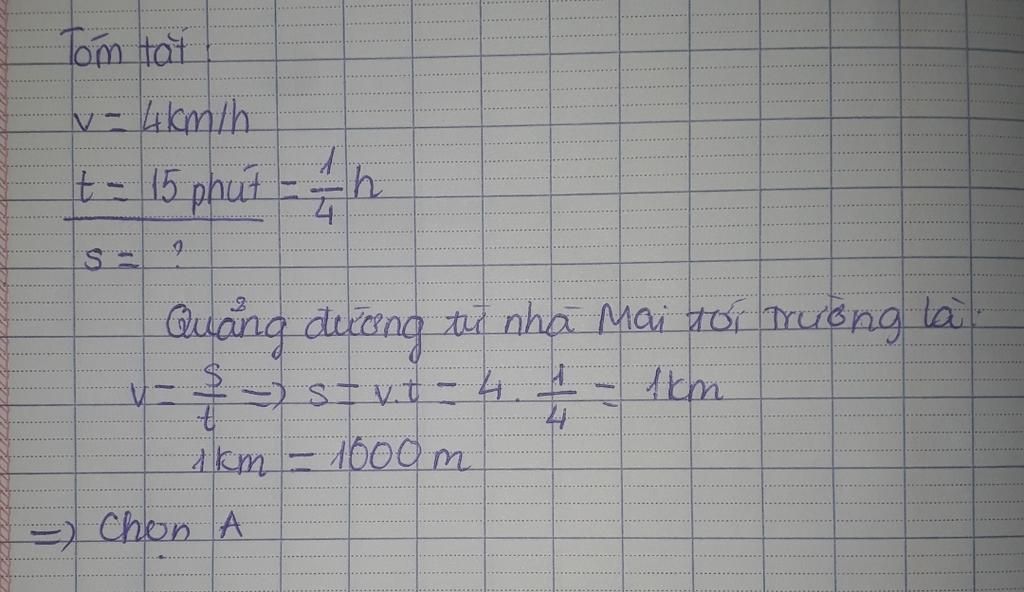 Tóm tắt:
v = 4km/h
t = 15 phút = 1/4 h
s = ?
Quảng đường từ nhà Mai tới trường là:
v = s/t => s = v.t = 4 . 1/4 = 1km
1km = 1000m
=> Chọn A